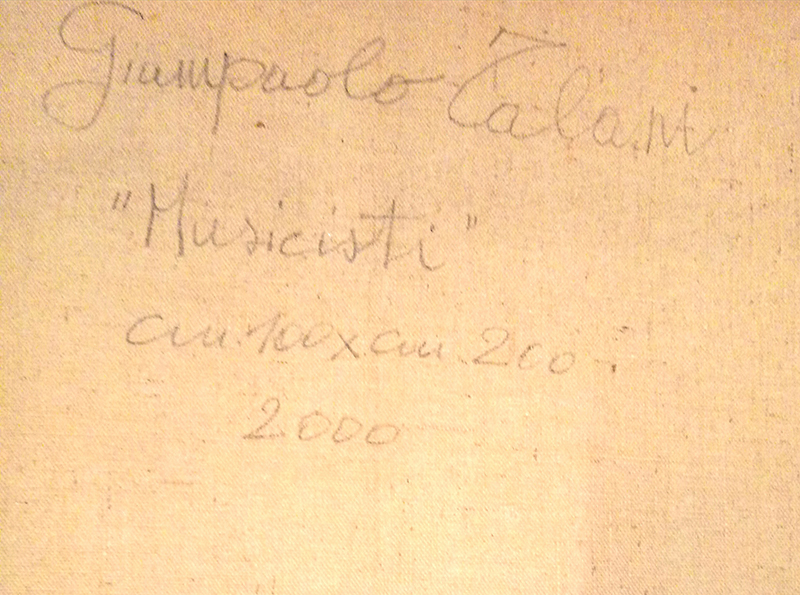 Giampaolo Talani
"Musicisti"
cm.100x cm.200.
2000